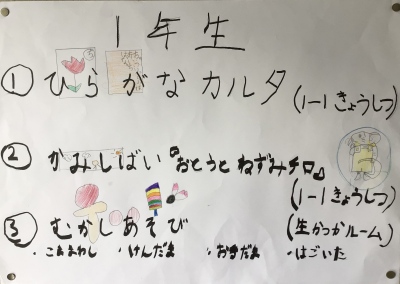 1年生
① ひらがなカルタ
(1-1きょうしつ)
② かみしばい『おとうとねずみチロ』
(1-1きょうしつ)
③ むかしあそび
(生かつかルーム)
・こままわし ・けんだま ・おてだま ・はごいた